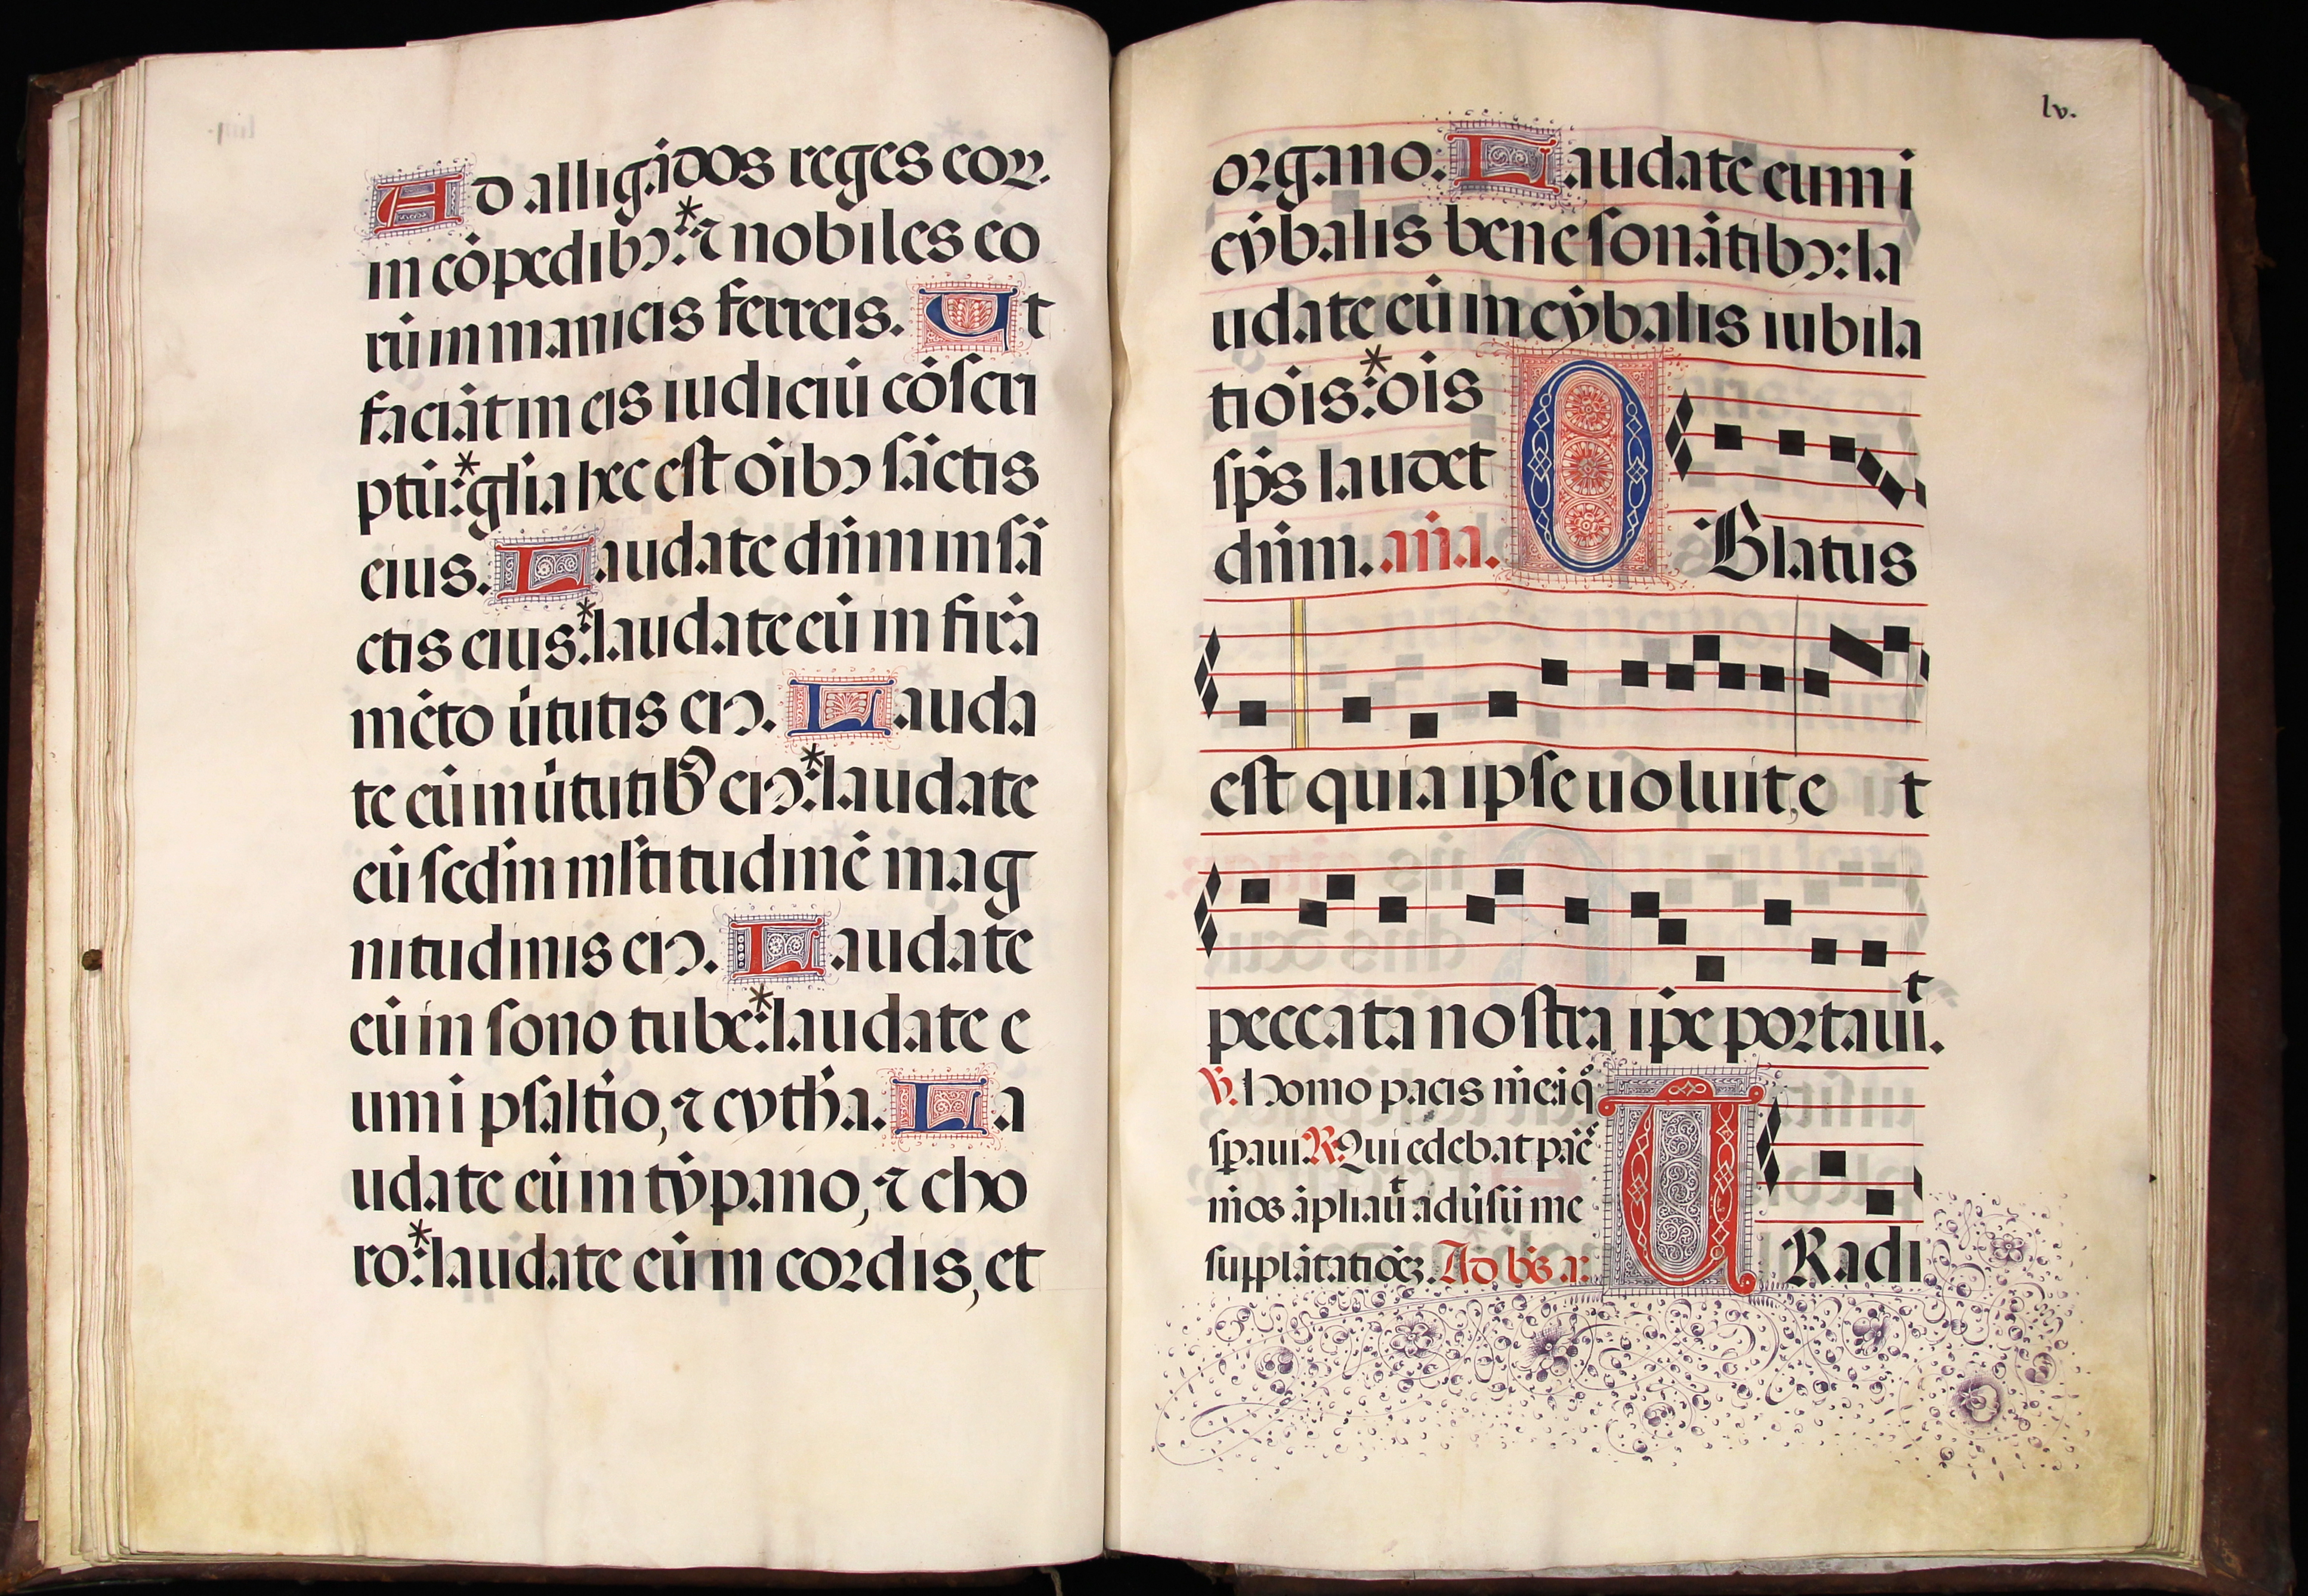 Ad alligādos reges eoꝝ.
in cōpedibꝰ:* ⁊ nobiles eo
rū in manicis ferreis. Ut
faciāt in eis iudiciū cōſcri
ptū:* gl̄ia hec eſt oībꝰ ſāctis
eius. Laudate dn̄m in ſā
ctis eius:* laudate eū in firma
mēto ūtutis eiꝰ. Lauda
te eū in ūtutibꝰ eiꝰ:* laudate
eū ſcd̄m ml̄titudinē mag
nitudinis eiꝰ. Laudate
eū in ſono tube:* laudate e
um i pſalt̄io, ⁊ cyth̄a. La
udate eū in tȳpano, ⁊ cho
ro:* laudate eū in cordis, et
lv.
organo. Laudate eum i
cȳbalis bene ſonātibꝰ: la
udate eū in cȳbalis iubila
tiōis:* oīs
ſp̄s laudet
dn̄m. an̄a. OBlatus
eſt quia ipſe uoluit, e t
peccata noſtra ip̄e portauit.
℣. Homo pacis mēe ī q̊
ſp̄aui ℟. Qui edebat pāe
m̄os āpliauit adūſū me
ſupplātatiōeꝫ. Ad bn̄s a. TRadi